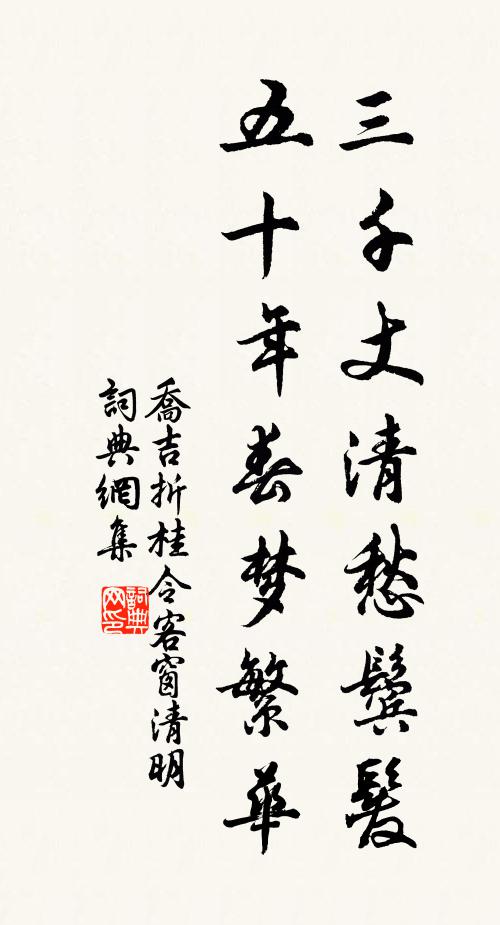 三千丈清愁鬢髮
五十年春梦繁華
喬吉折桂令客窗清明
詞典網集
詞典网印